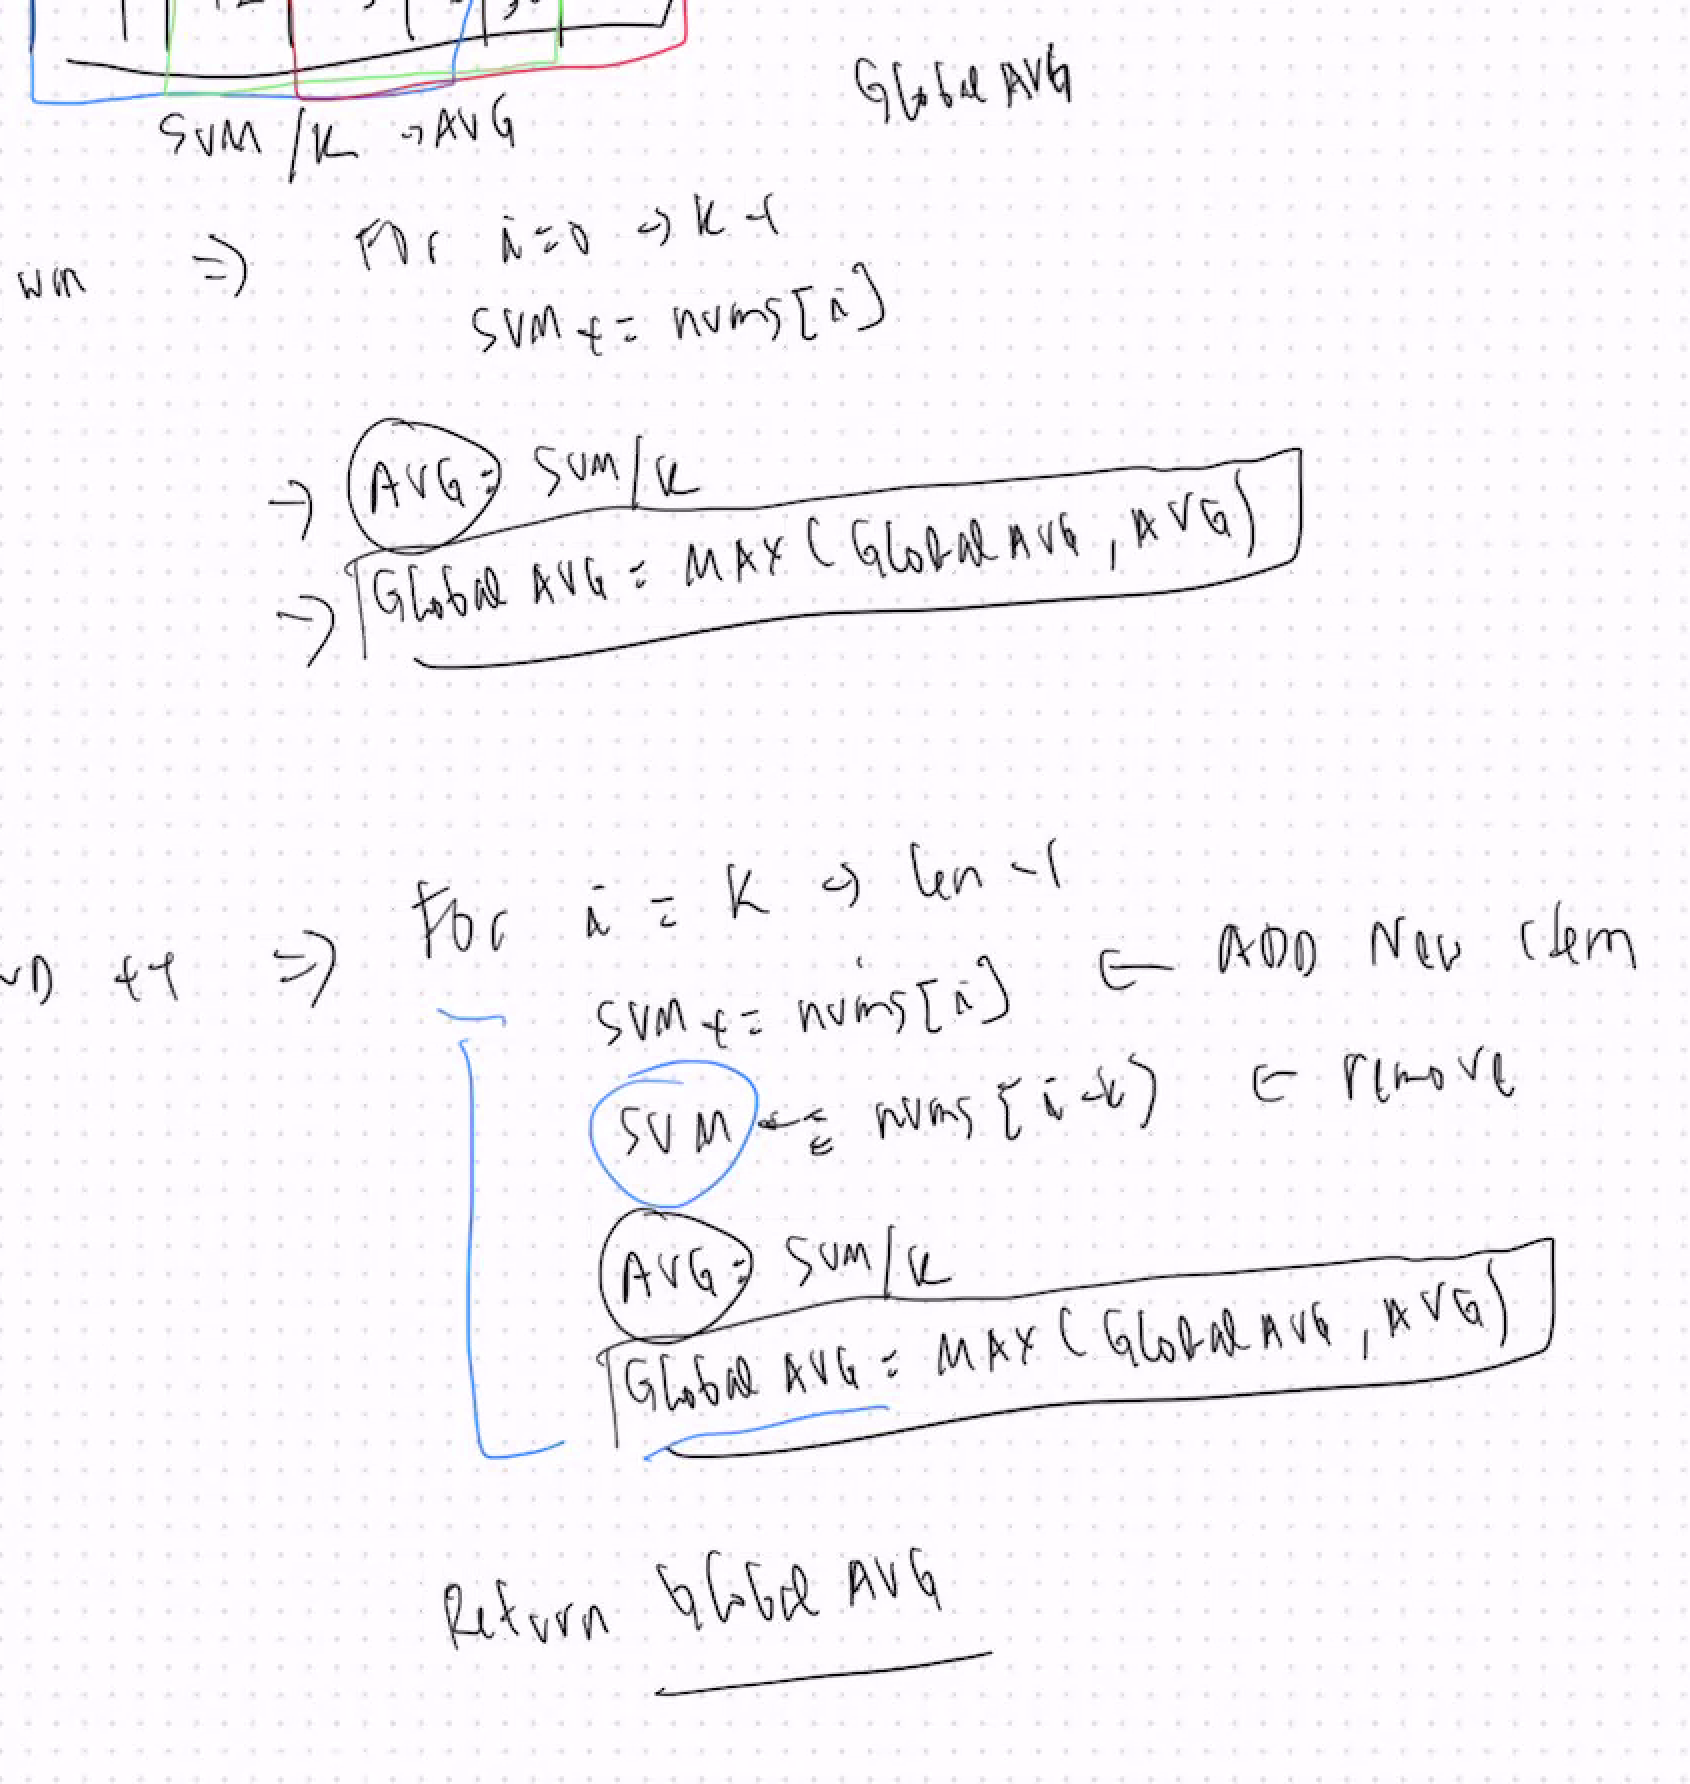 SUM /K → AVG
Global AVG
win ⇒ For i=0 → K-1
SUM += nums[i]
→ AVG = SUM/K
→ Global AVG = MAX(Global AVG, AVG)
For i = K → len -1
++ ⇒
SUM += nums[i] ← ADD New elem
SUM -= nums[i-k] ← remove
AVG = SUM/K
Global AVG = MAX(Global AVG, AVG)
Return Global AVG